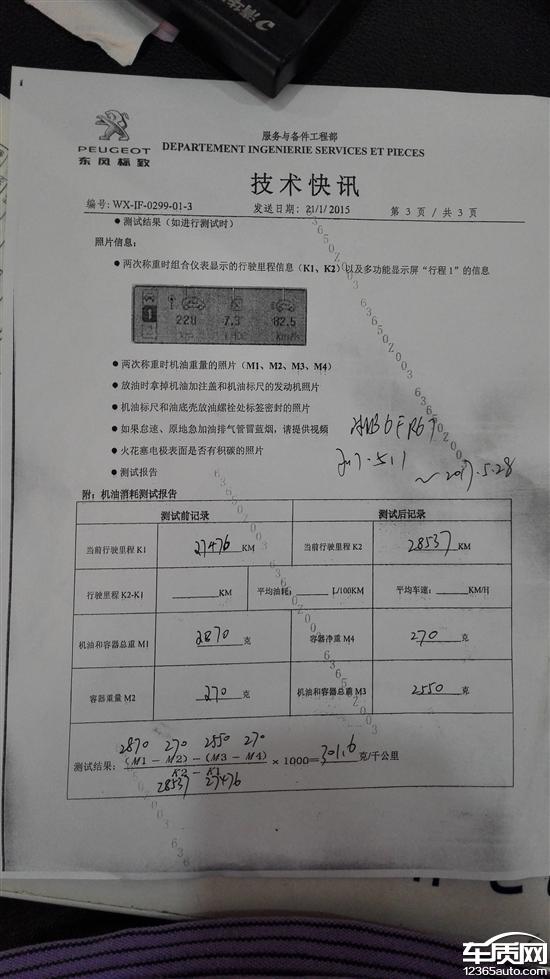 PEUGEOT
东风标致
服务与备件工程部
DEPARTEMENT INGENIERIE SERVICES ET PIECES
技术快讯
编号: WX-IF-0299-01-3
发送日期: 21/1/2015
第 3 页 / 共 3 页
● 测试结果（如进行测试时）
照片信息:
● 两次称重时组合仪表显示的行驶里程信息（K1、K2）以及多功能显示屏“行程 1”的信息
1
228
7.3
82.5
km/h
● 两次称重时机油重量的照片（M1、M2、M3、M4）
● 放油时拿掉机油加注盖和机油标尺的发动机照片
● 机油标尺和油底壳放油螺栓处标签密封的照片
● 如果怠速、原地急加油排气管冒蓝烟，请提供视频
● 火花塞电极表面是否有积碳的照片
● 测试报告
~ 2017.5.28
附: 机油消耗测试报告
测试前记录
测试后记录
当前行驶里程 K1 27476 KM
当前行驶里程 K2 28537 KM
行驶里程 K2-K1 KM
平均油耗: L/100KM
平均车速: KM/H
机油和容器总重 M1 2870 克
容器净重 M4 270 克
容器重量 M2 270 克
机油和容器总重 M3 2550 克
2870 270 2550 270
测试结果: (M1 − M2) − (M3 − M4) × 1000= 301.6 克/千公里
K2 − K1
28537 27476
车质网
12365auto.com